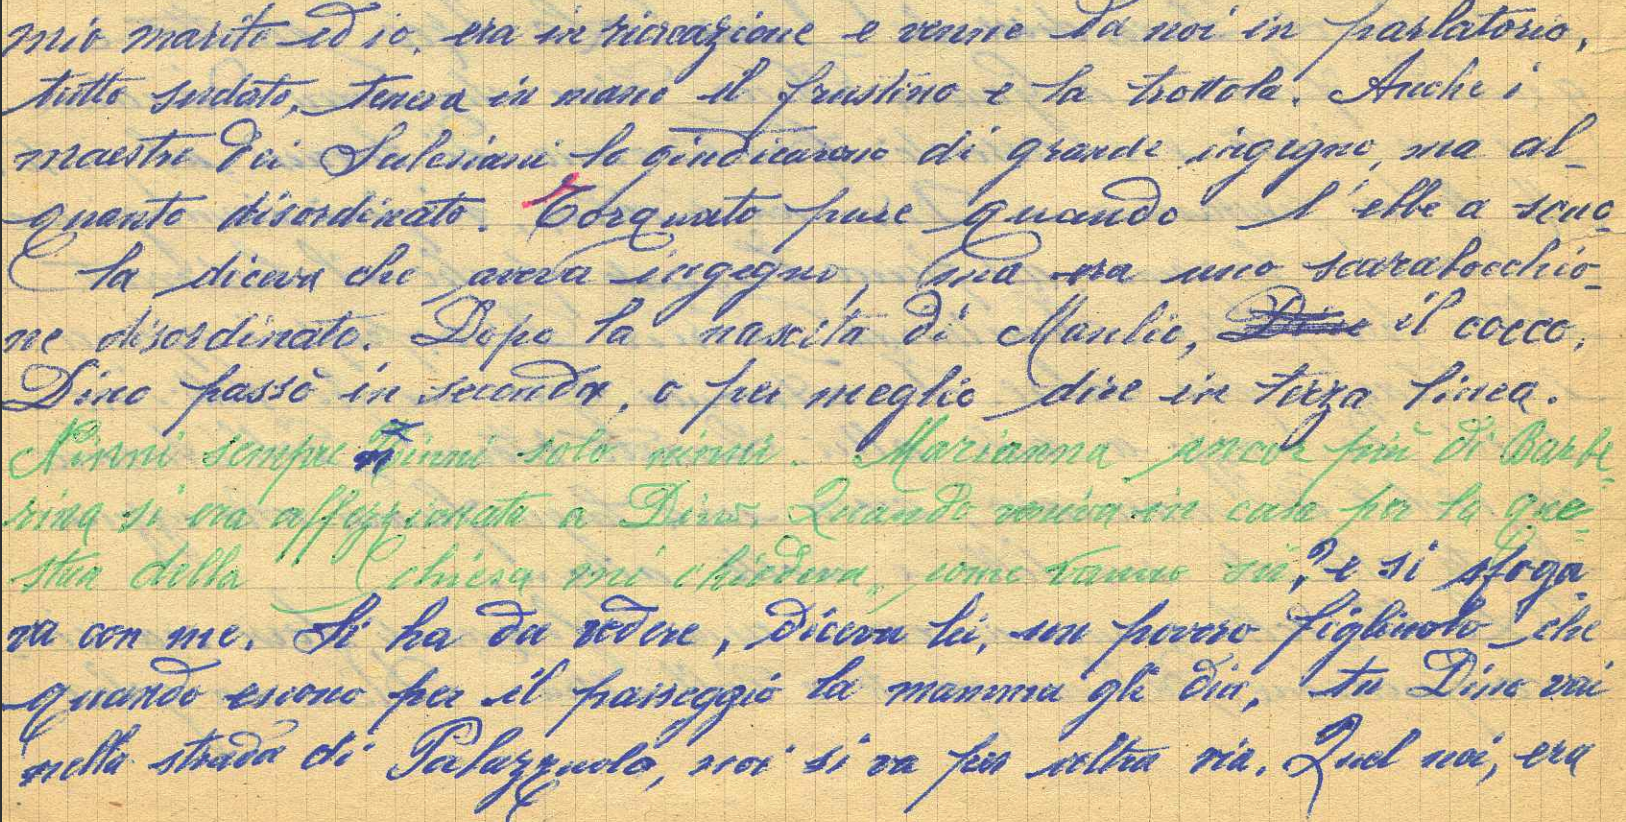 mio marito ed io, era in ricreazione e venne da noi in parlatorio,
tutto sudato, teneva in mano il frustino e la trottola. Anche i
maestri dei Salesiani lo giudicarono di grande ingegno, ma al-
quanto disordinato. Torquato pure quando l'ebbe a scuo-
la diceva che aveva ingegno, ma era uno scarabocchio-
ne disordinato. Dopo la nascita di Manlio, il cocco,
Dino passò in seconda, o per meglio dire in terza linea.
Ninni sempre Ninni solo ninni. Marianna ancor più di Barbe-
rina si era affezzionata a Dino. Quando veniva in casa per la que-
stua della Chiesa mi chiedeva, come vanno sù? e si sfoga
va con me. Si ha da vedere, diceva lei, un povero figliuolo che
quando escono per il passeggio la mamma gli dia, tu Dino vai
nella strada di Palazzuolo, noi si va per altra via. Quel noi, era